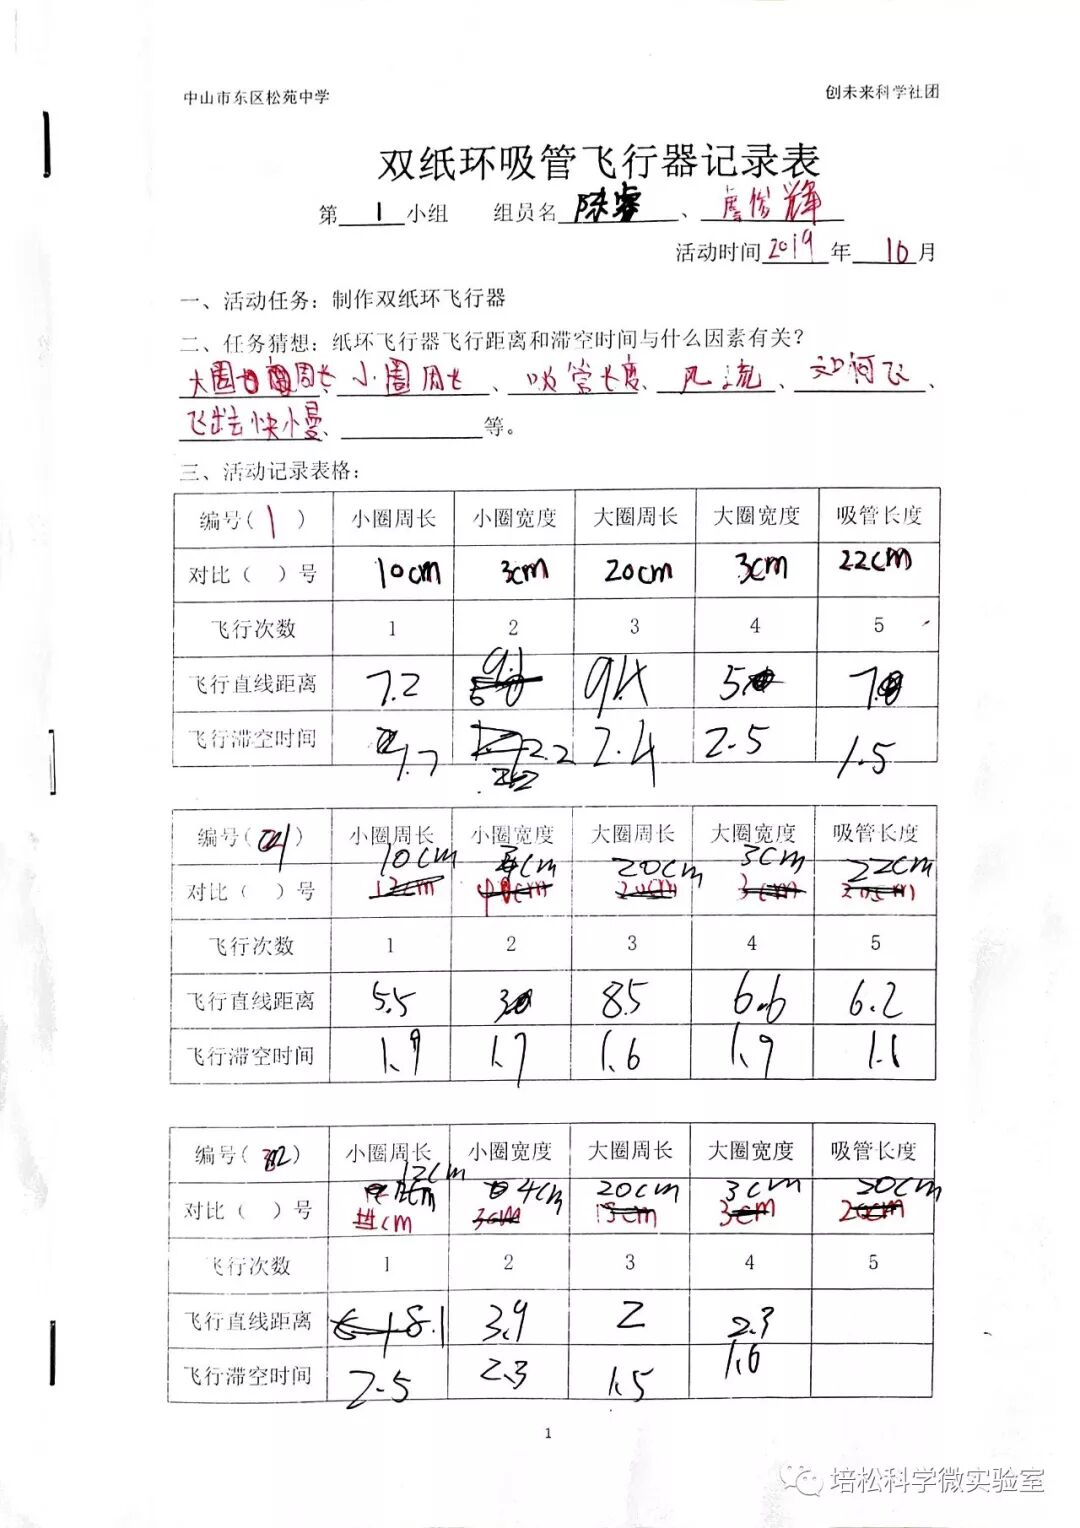 中山市东区松苑中学 创未来科学社团
双纸环吸管飞行器记录表
第 1 小组 组员名 陈睿 、 俊辉
活动时间 2019 年 10 月
一、活动任务：制作双纸环飞行器
二、任务猜想：纸环飞行器飞行距离和滞空时间与什么因素有关？
大圈周长、小圈周长、吸管长度、风流、如何飞、
飞出去快小慢、 等。
三、活动记录表格：
编号( 1 ) 小圈周长 小圈宽度 大圈周长 大圈宽度 吸管长度
对比（ ）号 10cm 3cm 20cm 3cm 22cm
飞行次数 1 2 3 4 5
飞行直线距离 7.2 9.1 9.4 5. 7.
飞行滞空时间 1.7 2.2 2.4 2.5 1.5
编号( ) 小圈周长 小圈宽度 大圈周长 大圈宽度 吸管长度
10cm cm 20cm 3cm 22cm
对比（ ）号
飞行次数 1 2 3 4 5
飞行直线距离 5.5 3 8.5 6.6 6.2
飞行滞空时间 1.9 1.7 1.6 1.9 1.1
编号( 2) 小圈周长 小圈宽度 大圈周长 大圈宽度 吸管长度
12cm 4cm 20cm 3cm 20cm
对比（ ）号 cm 3cm 15cm 3cm 20cm
飞行次数 1 2 3 4 5
飞行直线距离 8.1 3.9 2 2.3
飞行滞空时间 2.5 2.3 1.5 1.6
1
培松科学微实验室